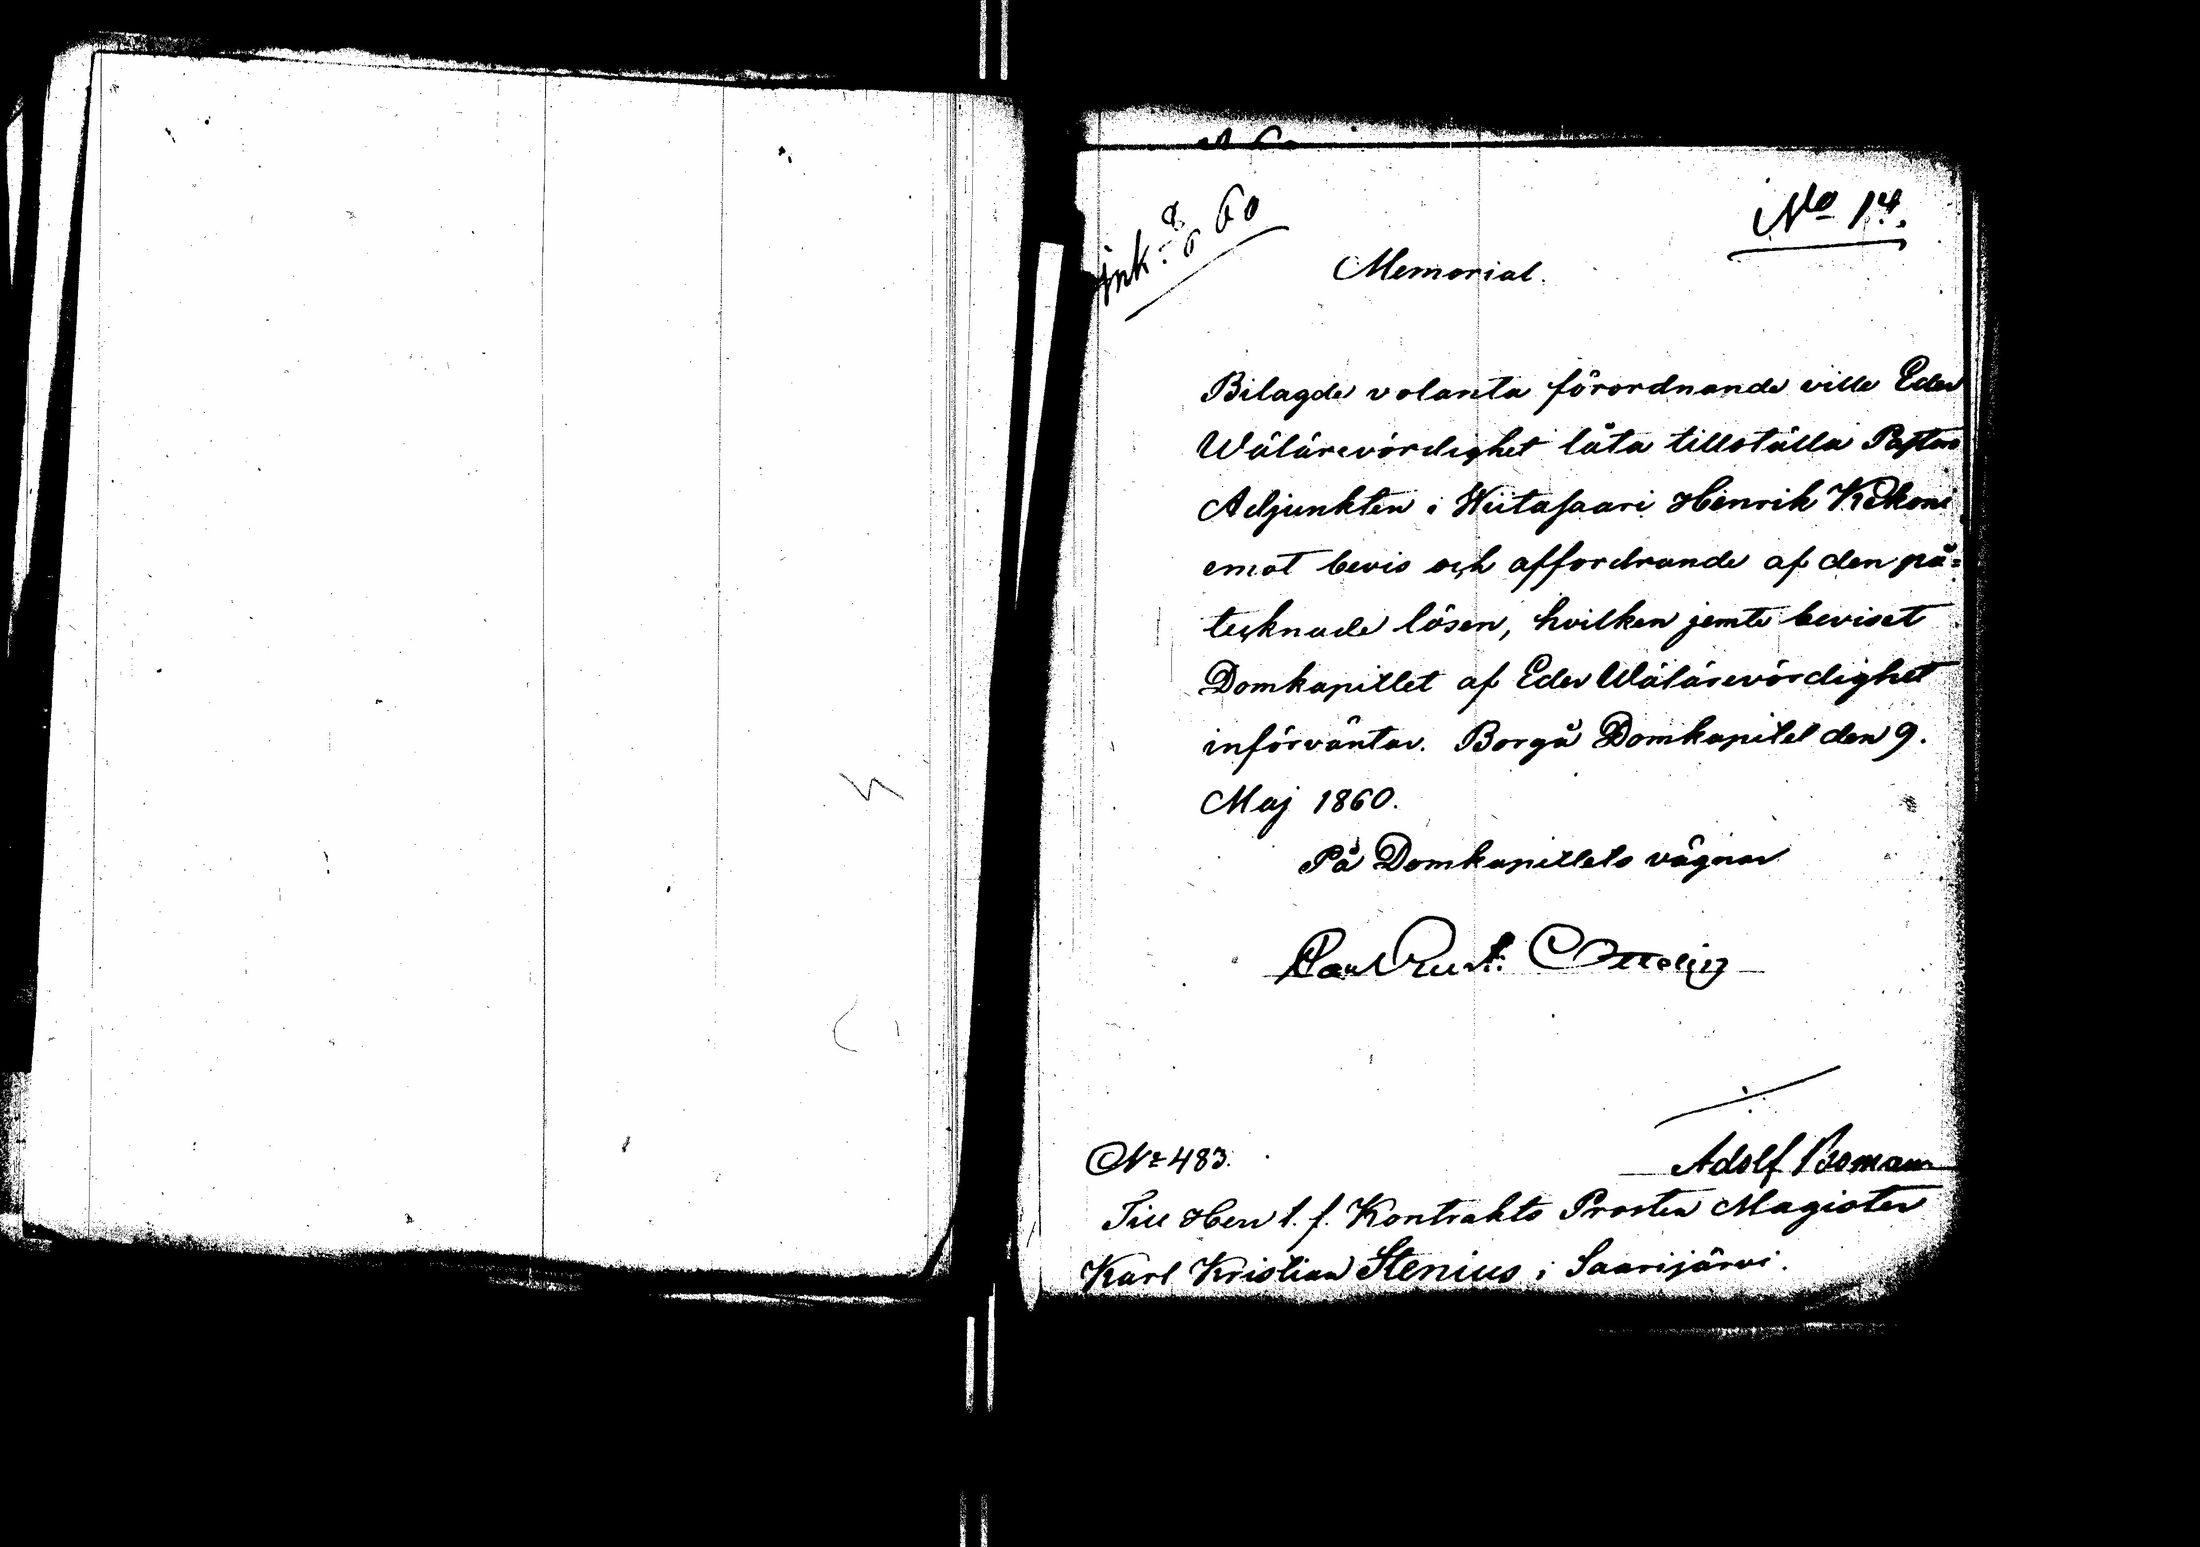 ink: 8/6 60
No 14.
Memorial.
Bilagde volanta förordnande ville Eder
Wälärevördighet låta tillställa Pastors
Adjunkten i Wiitasaari Henrik Kekoni
emot bevis och affordrande af den på=
tecknade lösen, hvilken jemte beviset
Domkapitlet af Eder Wälärevördighet
införväntar. Borgå Domkapitel den 9.
Maj 1860.
På Domkapitlets vägnar
Ottelin
Adolf Boman
No 483.
Till Herr t. f. Kontrakts Prosten Magister
Karl Kristian Stenius i Saarijärvi.